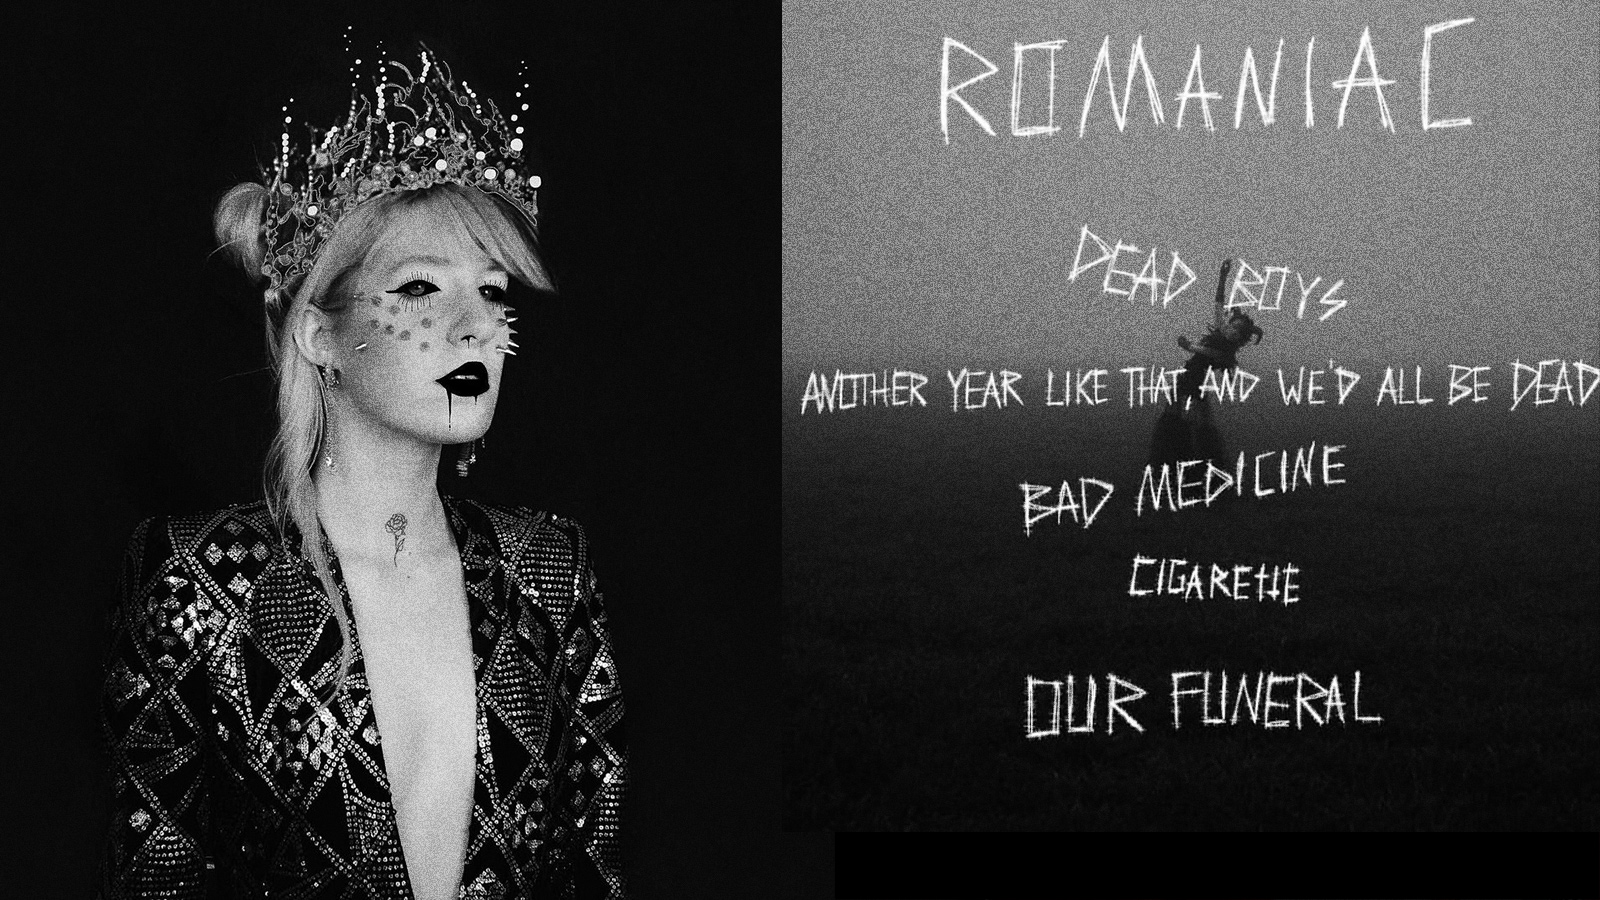 ROMANIAC
DEAD BOYS
ANOTHER YEAR LIKE THAT, AND WE'D ALL BE DEAD
BAD MEDICINE
CIGARETTE
OUR FUNERAL